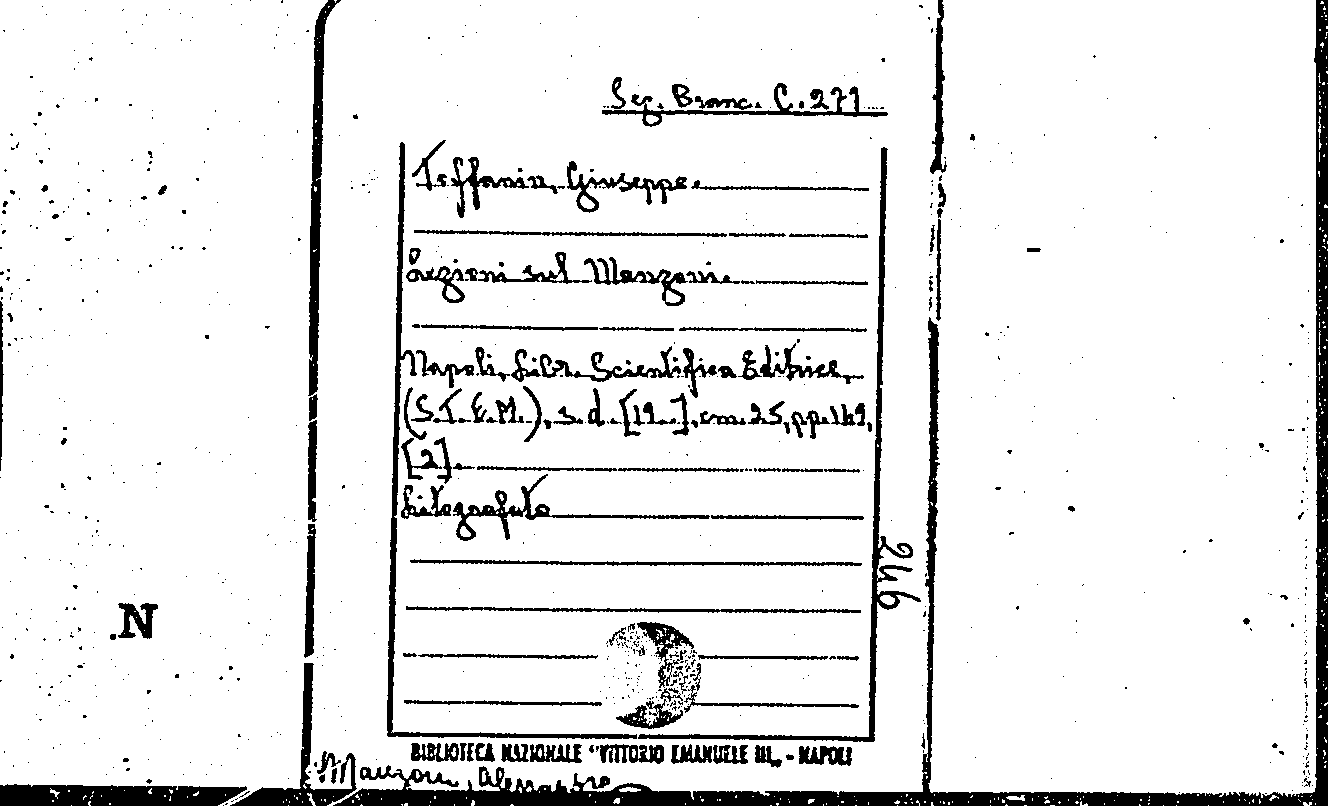 Sez. Branc. C. 271
Toffanin, Giuseppe.
Lezioni sul Manzoni.
Napoli, Libr. Scientifica Editrice,
(S.T.E.M.), s.d. [19..], cm. 25, pp. 149,
[2].
Litografato
246
.N
BIBLIOTECA NAZIONALE "VITTORIO EMANUELE III„ - NAPOLI
Manzoni, Alessandro